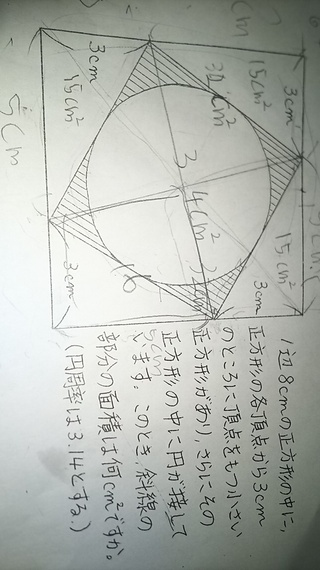 1辺8cmの正方形の中に、
正方形の各頂点から3cm
のところに頂点をもつ小さい
正方形があり、さらにその
正方形の中に円が接して
います。このとき、斜線の
部分の面積は何cm²ですか。
(円周率は3.14とする。)
3cm
15cm²
3cm
15cm²
3cm
15cm²
3cm
3
4cm²
16
5cm
5cm